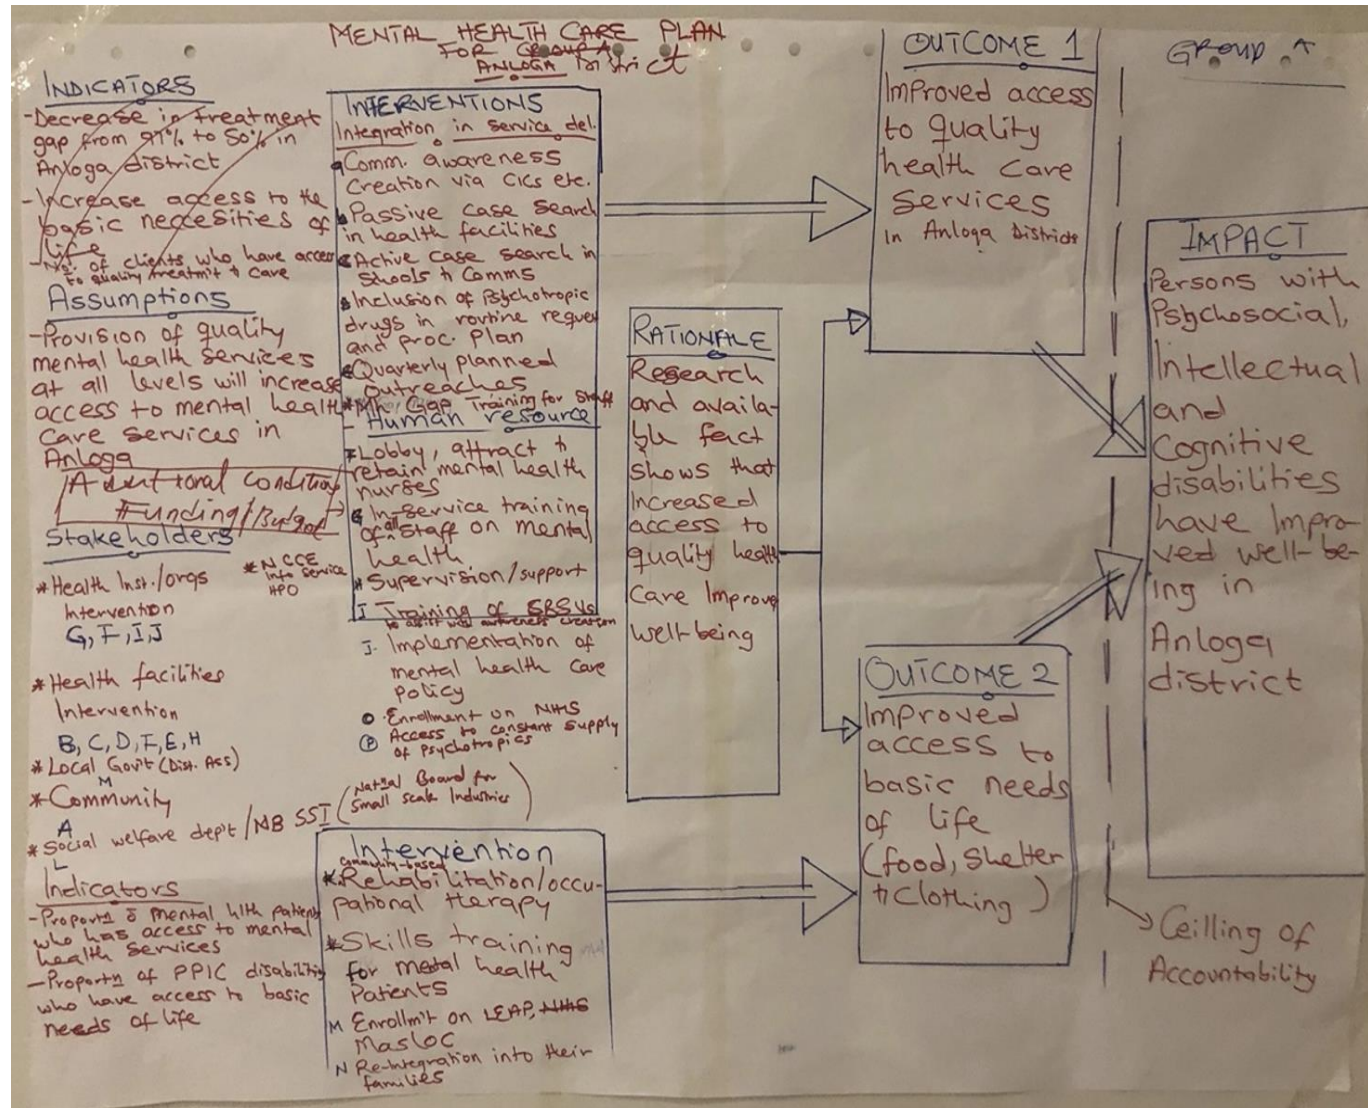 MENTAL HEALTH CARE PLAN
FOR GROUP A
ANLOGA District
GROUP A
INDICATORS
-Decrease in treatment
gap from 97% to 50% in
Anloga district
-Increase access to the
basic necessities of
life
-No. of clients who have access
to quality treatm't & care
Assumptions
-Provision of quality
mental health services
at all levels will increase
access to mental health
Care services in
Anloga
Additional Condition
Funding/Budget
Stakeholders
* Health Inst./orgs
Intervention
G, F, I, J
* NCCE
Info Service
HPO
* Health facilities
Intervention
B, C, D, F, E, H
* Local Gov't (Dist. Ass)
M
* Community
A
* Social welfare dep't / NB SSI (Nat'nal Board for
Small scale Industries)
L
Indicators
-Proportn o mental hlth patients
who has access to mental
health services
-Proportn of PPIC disability
who have access to basic
needs of life
INTERVENTIONS
Integration in service del.
Comm. awareness
Creation via CICs etc.
Passive case search
in health facilities
Active case search in
Schools & Comms
Inclusion of Psychotropic
drugs in routine reques
and proc. Plan
Quarterly planned
outreaches
* Mh Gap Training for Staff
- Human resource
* Lobby, attract &
retain mental health
nurses
G In-Service training
of all Staff on mental
health
* Supervision/support
I Training of SBSVs
to assist with awareness creation
J. Implementation of
mental health care
policy
O. Enrollment on NHIS
P Access to constant supply
of psychotropics
Intervention
Community-based
* Rehabilitation/occu-
pational therapy
* Skills training
for mental health
Patients
M Enrollm't on LEAP, NHIS
Masloc
N Re-Integration into their
families
RATIONALE
Research
and availa-
ble fact
shows that
increased
access to
quality health
care Improve
well-being
OUTCOME 1
Improved access
to quality
health care
Services
in Anloga Districts
OUTCOME 2
Improved
access to
basic needs
of life
(food, Shelter
& Clothing)
IMPACT
Persons with
Psychosocial,
Intellectual
and
Cognitive
disabilities
have Impro-
ved well-be-
ing in
Anloga
district
Ceilling of
Accountability